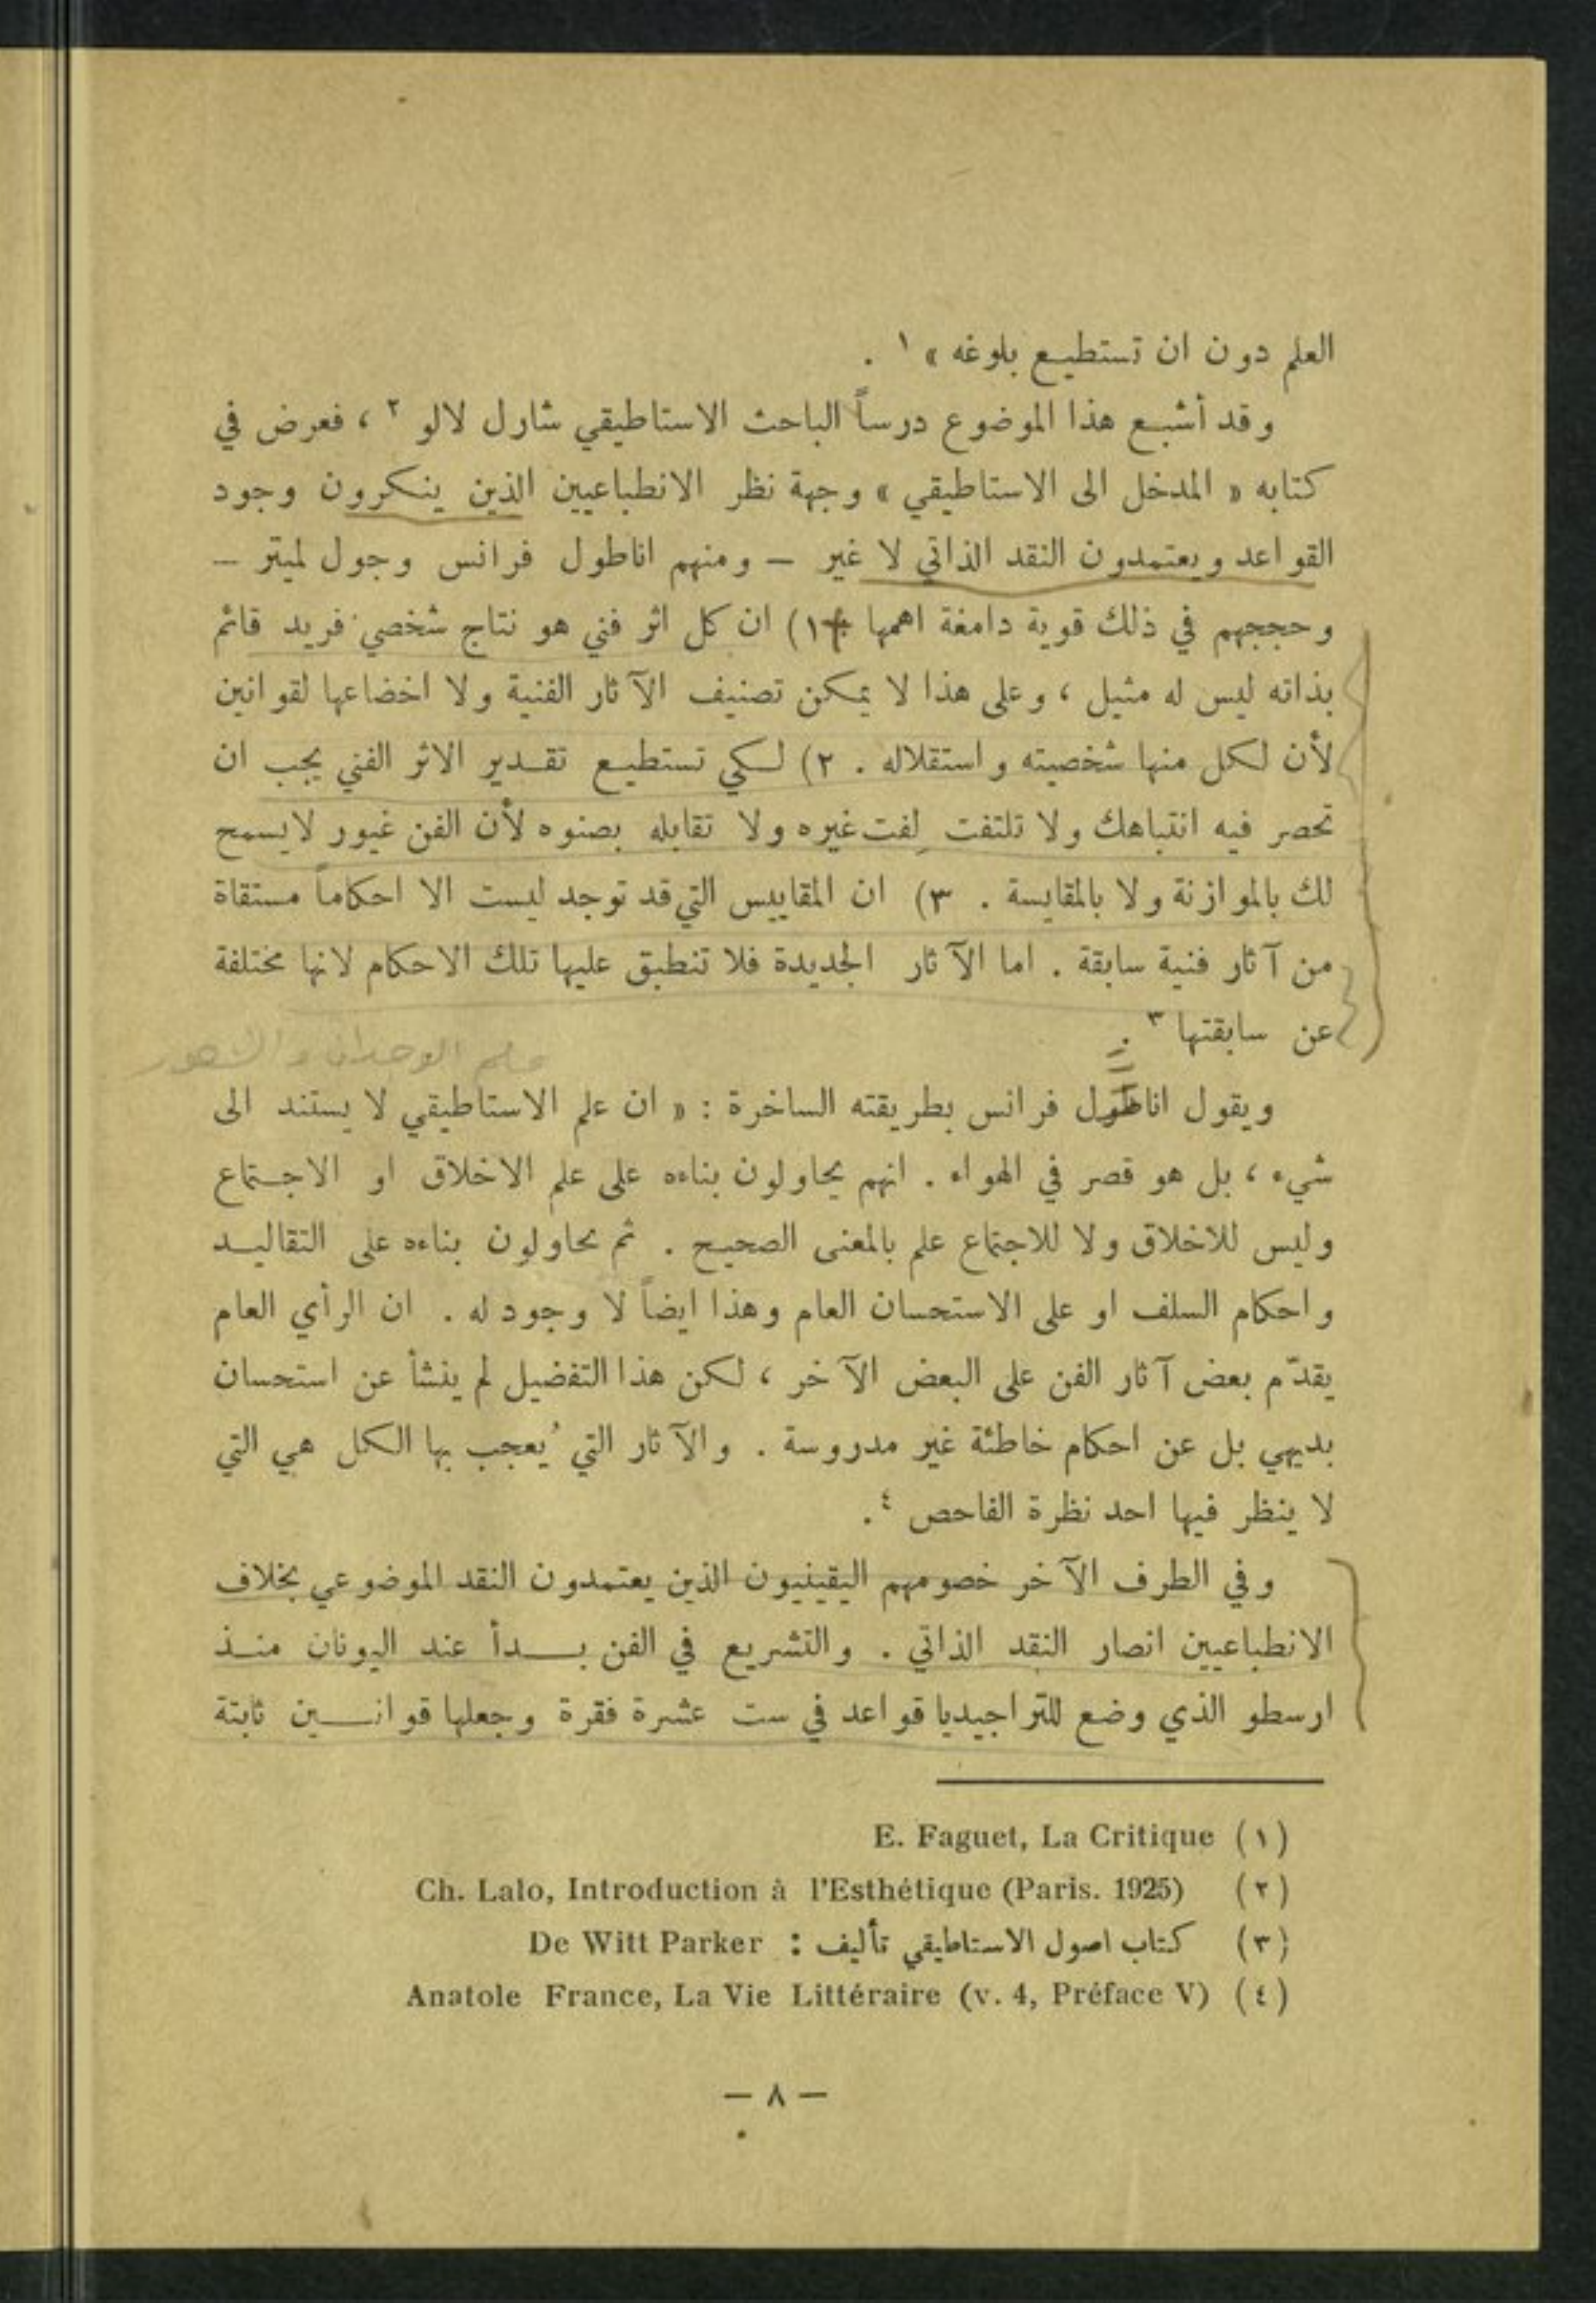 العلم دون ان تستطيع بلوغه » ١ .
وقد أشبع هذا الموضوع درساً الباحث الاستاطيقي شارل لالو ٢ ، فعرض في
كتابه « المدخل الى الاستاطيقي » وجهة نظر الانطباعيين الذين ينكرون وجود
القواعد ويعتمدون النقد الذاتي لا غير – ومنهم اناطول فرانس وجول لميتر –
وحججهم في ذلك قوية دامغة اهمها ١) ان كل اثر فني هو نتاج شخصي فريد قائم
بذاته ليس له مثيل ، وعلى هذا لا يمكن تصنيف الآثار الفنية ولا اخضاعها لقوانين
لأن لكل منها شخصيته واستقلاله . ٢) لكي تستطيع تقدير الاثر الفني يجب ان
تحصر فيه انتباهك ولا تلتفت لفت غيره ولا تقابله بصنوه لأن الفن غيور لا يسمح
لك بالموازنة ولا بالمقايسة . ٣) ان المقاييس التي قد توجد ليست الا احكاماً مستقاة
من آثار فنية سابقة . اما الآثار الجديدة فلا تنطبق عليها تلك الاحكام لانها مختلفة
عن سابقتها ٣ .
علم الوجدان والشعور
ويقول اناطول فرانس بطريقته الساخرة : « ان علم الاستاطيقي لا يستند الى
شيء ، بل هو قصر في الهواء . انهم يحاولون بناءه على علم الاخلاق او الاجتماع
وليس للاخلاق ولا للاجتماع علم بالمعنى الصحيح . ثم يحاولون بناءه على التقاليد
واحكام السلف او على الاستحسان العام وهذا ايضاً لا وجود له . ان الرأي العام
يقدّم بعض آثار الفن على البعض الآخر ، لكن هذا التفضيل لم ينشأ عن استحسان
بديهي بل عن احكام خاطئة غير مدروسة . والآثار التي يُعجب بها الكل هي التي
لا ينظر فيها احد نظرة الفاحص ٤ .
وفي الطرف الآخر خصومهم اليقينيون الذين يعتمدون النقد الموضوعي بخلاف
الانطباعيين انصار النقد الذاتي . والتشريع في الفن بدأ عند اليونان منذ
ارسطو الذي وضع للتراجيديا قواعد في ست عشرة فقرة وجعلها قوانين ثابتة
(١) E. Faguet, La Critique
(٢) Ch. Lalo, Introduction à l'Esthétique (Paris. 1925)
(٣) كتاب اصول الاستاطيقي تأليف : De Witt Parker
(٤) Anatole France, La Vie Littéraire (v. 4, Préface V)
– ٨ –